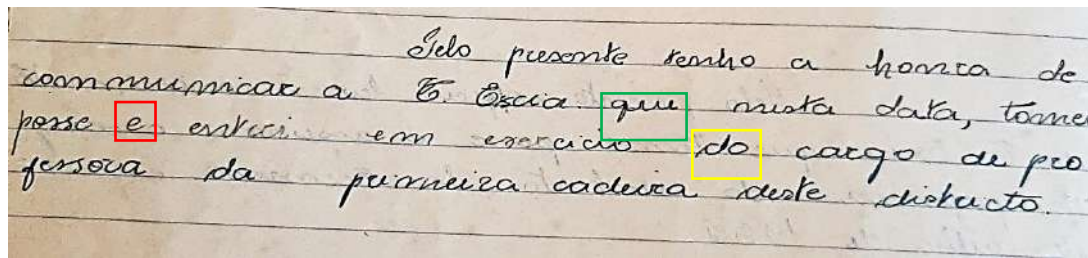 Pelo presente tenho a honra de
communicar a V. Excia. que nesta data, tomei
posse e entrei em exercicio do cargo de pro
fessora da primeira cadeira deste districto.